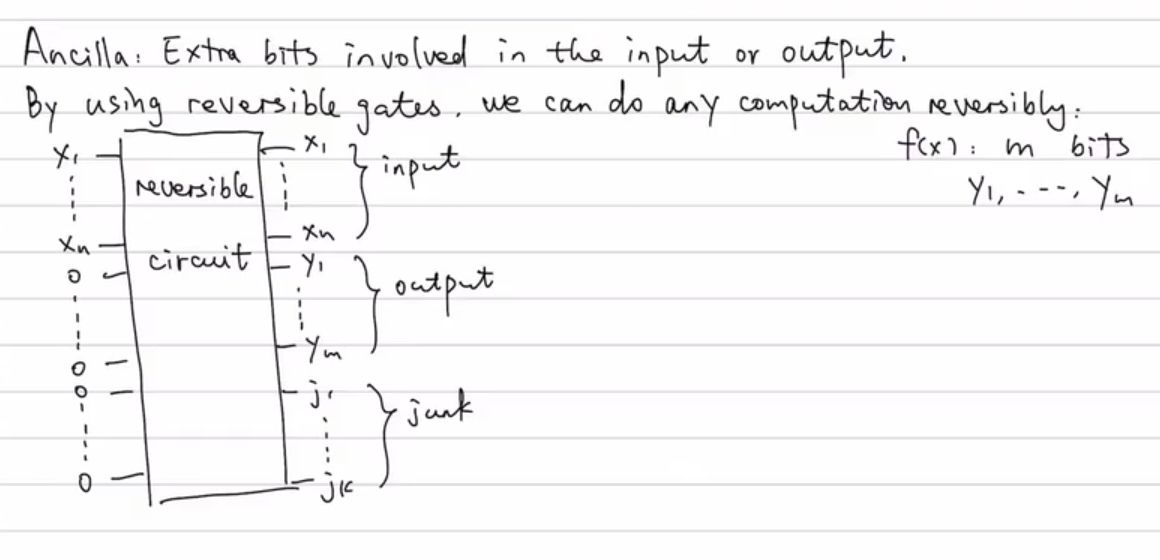 Ancilla: Extra bits involved in the input or output.
By using reversible gates, we can do any computation reversibly:
f(x): m bits
y1, ----, ym
x1
xn
0
0
0
0
reversible
circuit
x1
xn
input
y1
ym
output
j1
jk
junk